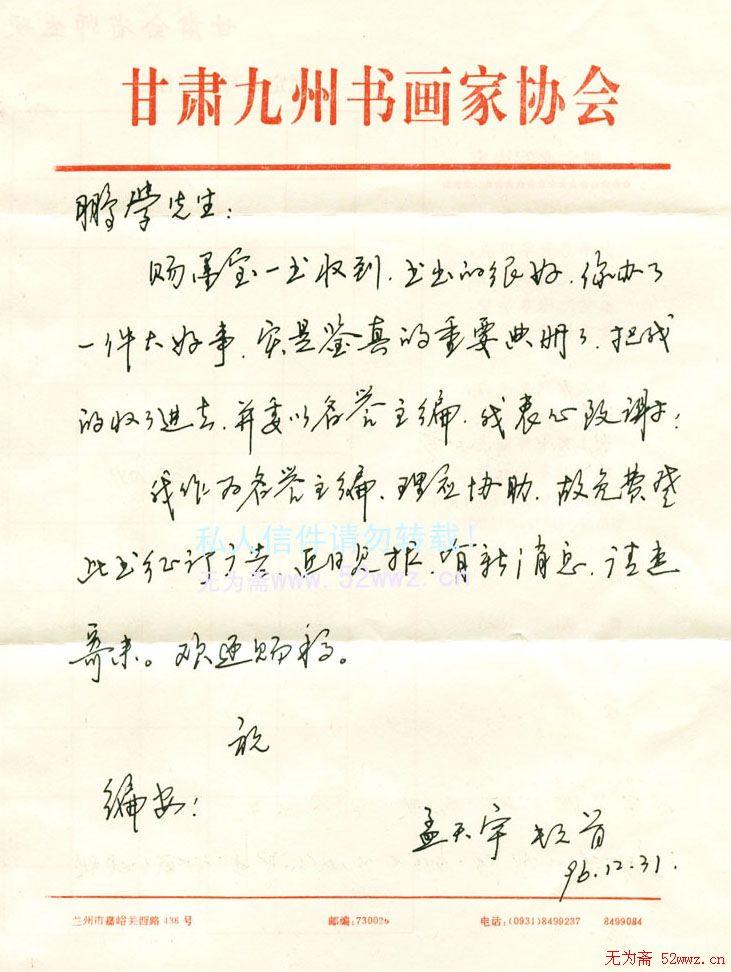 甘肃九州书画家协会
鹏举先生:
赐墨宝一书收到,书出的很好,你办了
一件大好事,实是鉴真的重要典册了,把我
的收了进去,并委以名誉主编,我衷心致谢!
我作为名誉主编,理应协助,故免费登
私人信件请勿转载!
此书征订广告,近日见报,有新消息,请惠
无为斋www.52wwz.cn
寄来。欢迎赐稿。
祝
编安!
孟天宇 顿首
96.12.31.
兰州市嘉峪关西路436号 邮编:730020 电话:(0931)8499237 8499084
无为斋 52wwz.cn